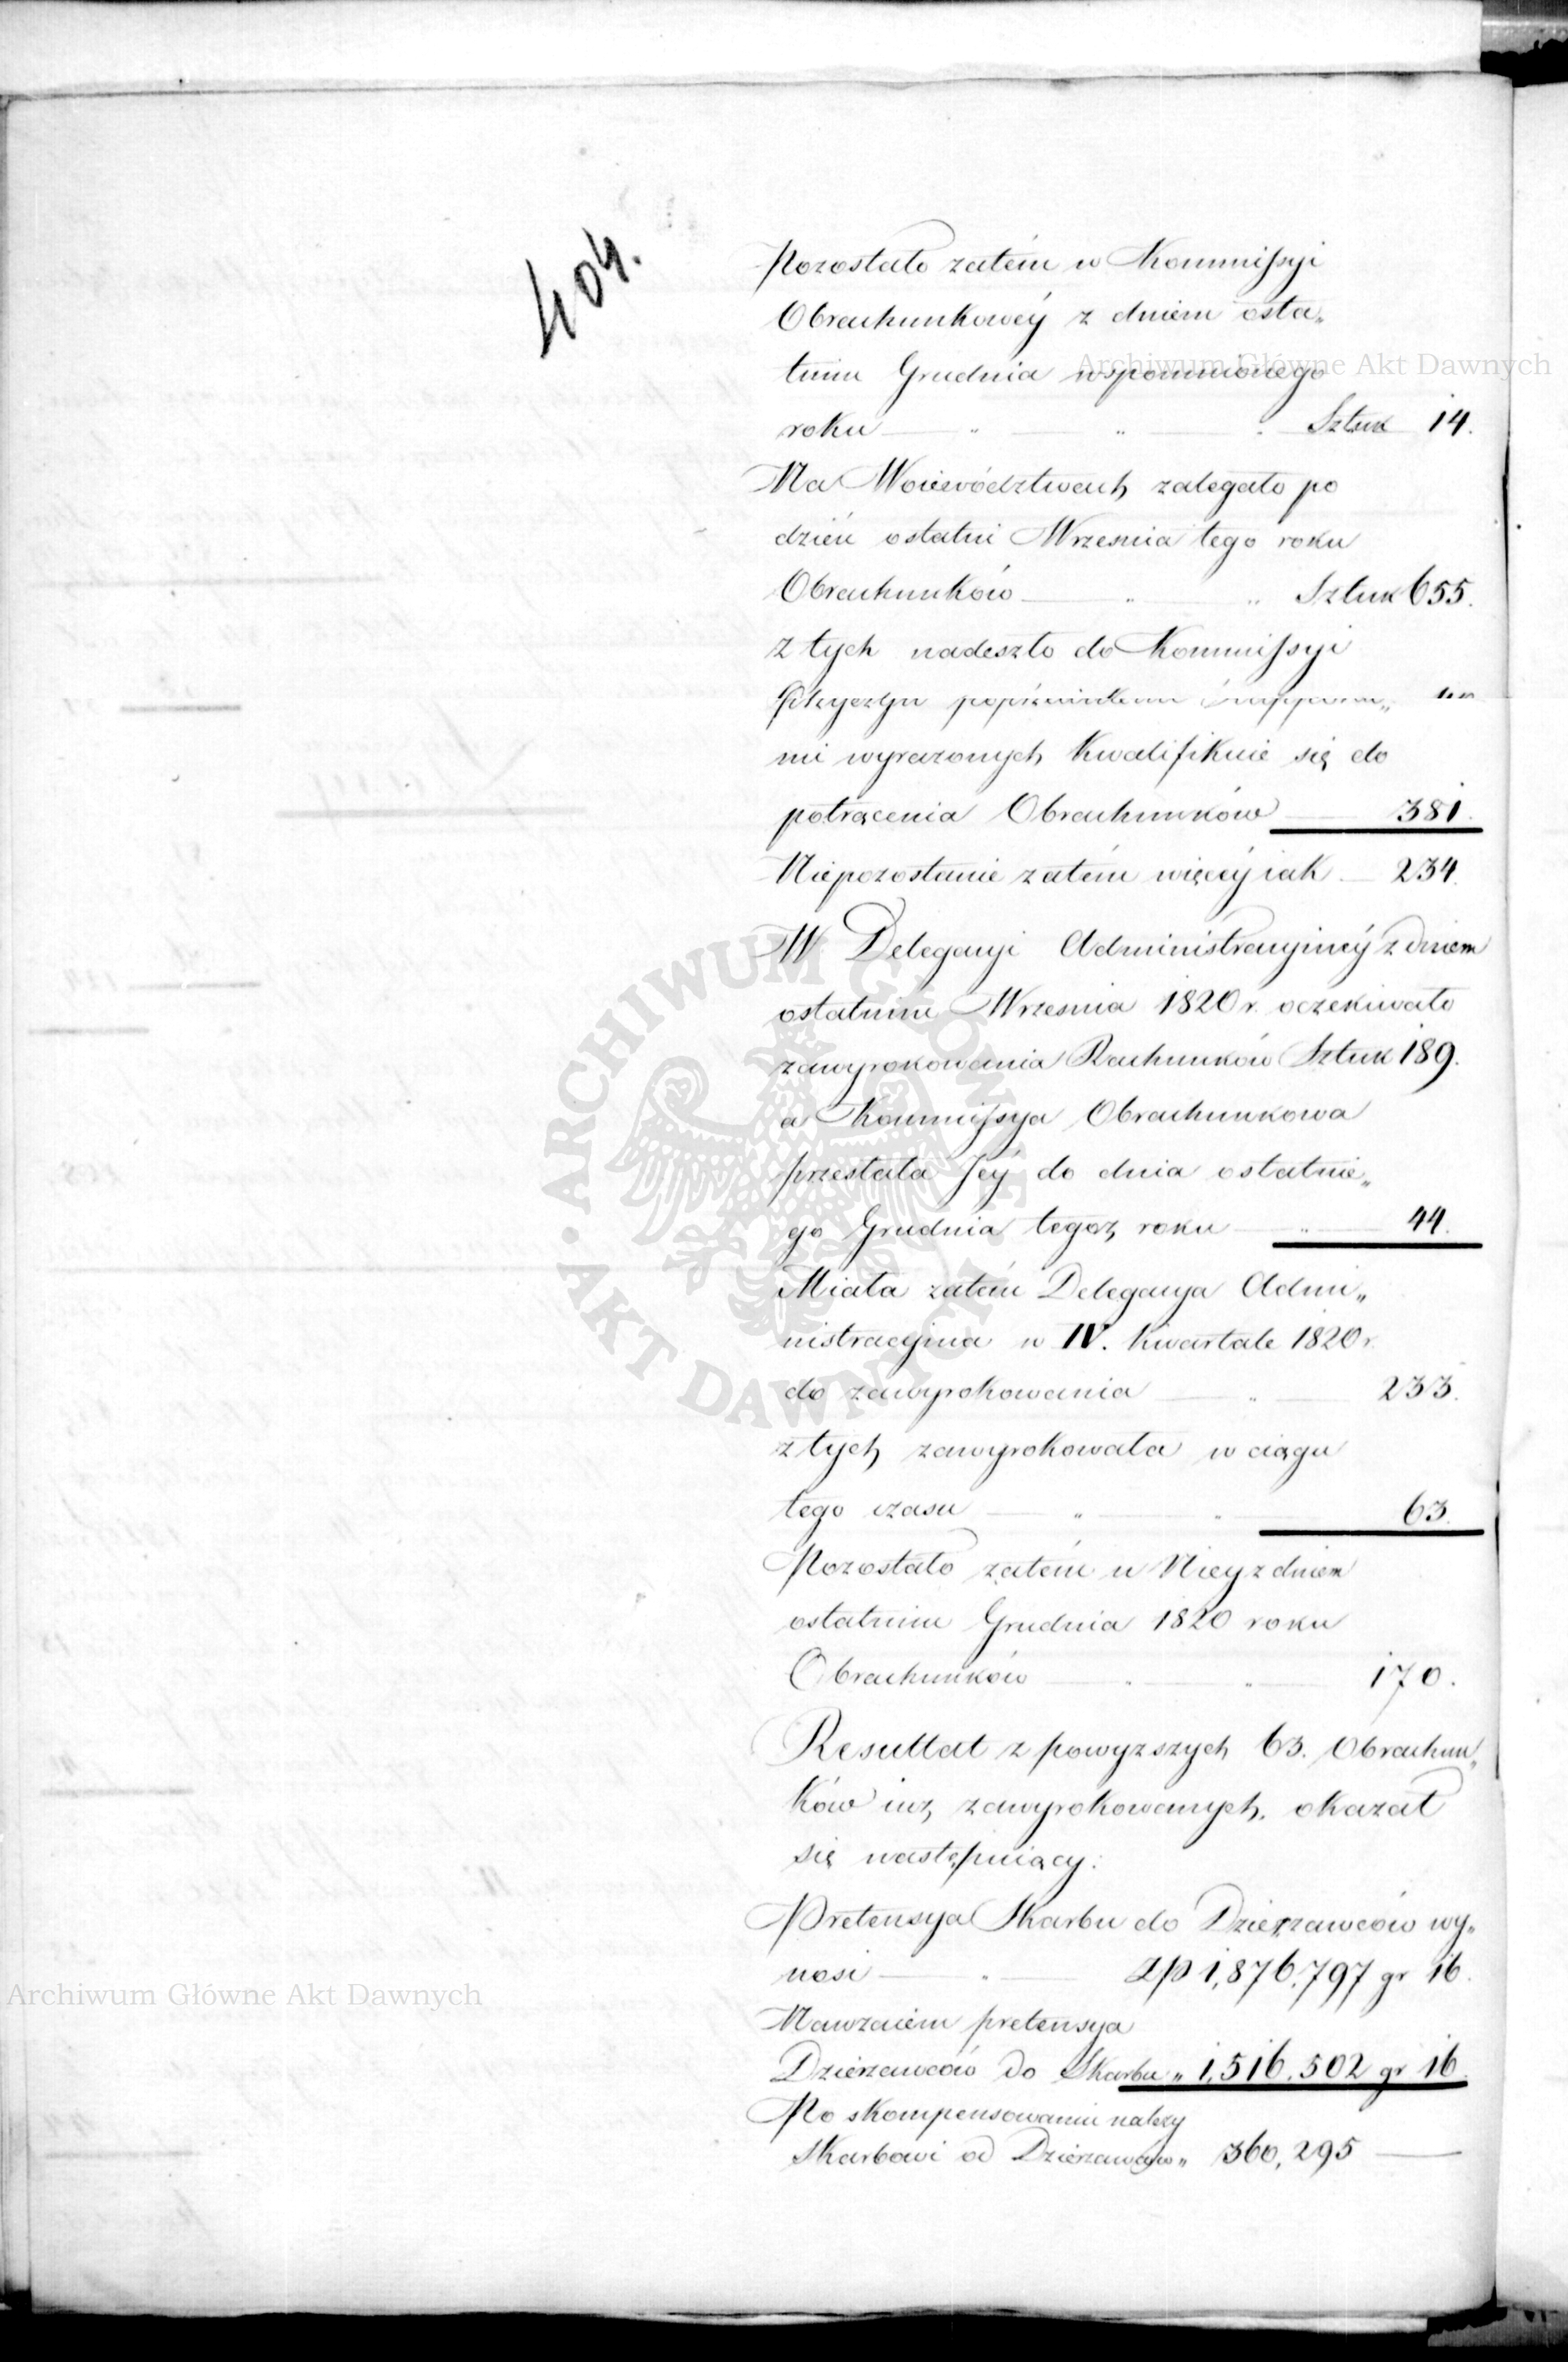 404.
Pozostało zatém w Kommissyi
Obrachunkowéy z dniem osta„
tnim Grudnia wspomnionego
roku — „ — „ — „ Sztuk 14.
Na Woiewództwach zalegało po
dzień ostatni Września tego roku
Obrachunków — „ — „ Sztuk 655.
z tych nadeszło do Kommissyi
mi wyrazonych kwalifikuie się do
potrącenia Obrachunków — 381.
Niepozostanie zatém więcéy iak — 234.
W Delegacyi Administracyinéy z dniem
ostatnim Września 1820 r. oczekiwało
zawyrokowania Rachunków Sztuk 189.
a Kommissya Obrachunkowa
przesłała Jéy do dnia ostatnie„
go Grudnia tegoż roku — „ — 44.
Miała zatém Delegacya Admi„
nistracyina w IV. kwartale 1820 r.
do zawyrokowania — „ — 233.
z tych zawyrokowała w ciągu
tego czasu — „ — „ 63.
Pozostało zatém w Niey z dniem
ostatnim Grudnia 1820 roku
Obrachunków — „ — „ — 170.
Resultat z powyzszych 63. Obrachun„
ków iuż zawyrokowanych. okazał
się następuiący:
Pretensya Skarbu do Dzierzawców wy„
nosi — „ — zp 1,876,797 gr 16.
Nawzaiem pretensya
Dzierzawców do Skarbu „ 1,516,502 gr 16.
Po skompensowaniu nalezy
Skarbowi od Dzierzawców „ 360,295 —
Archiwum Główne Akt Dawnych
ARCHIWUM GŁÓWNE • AKT DAWNYCH •
Archiwum Główne Akt Dawnych